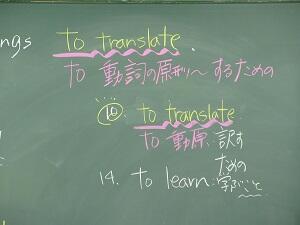 ngs to translate.
to 動詞の原形〜 するための
⑩. to translate
to 動原. 訳す
ための
14. to learn: 学ぶこと